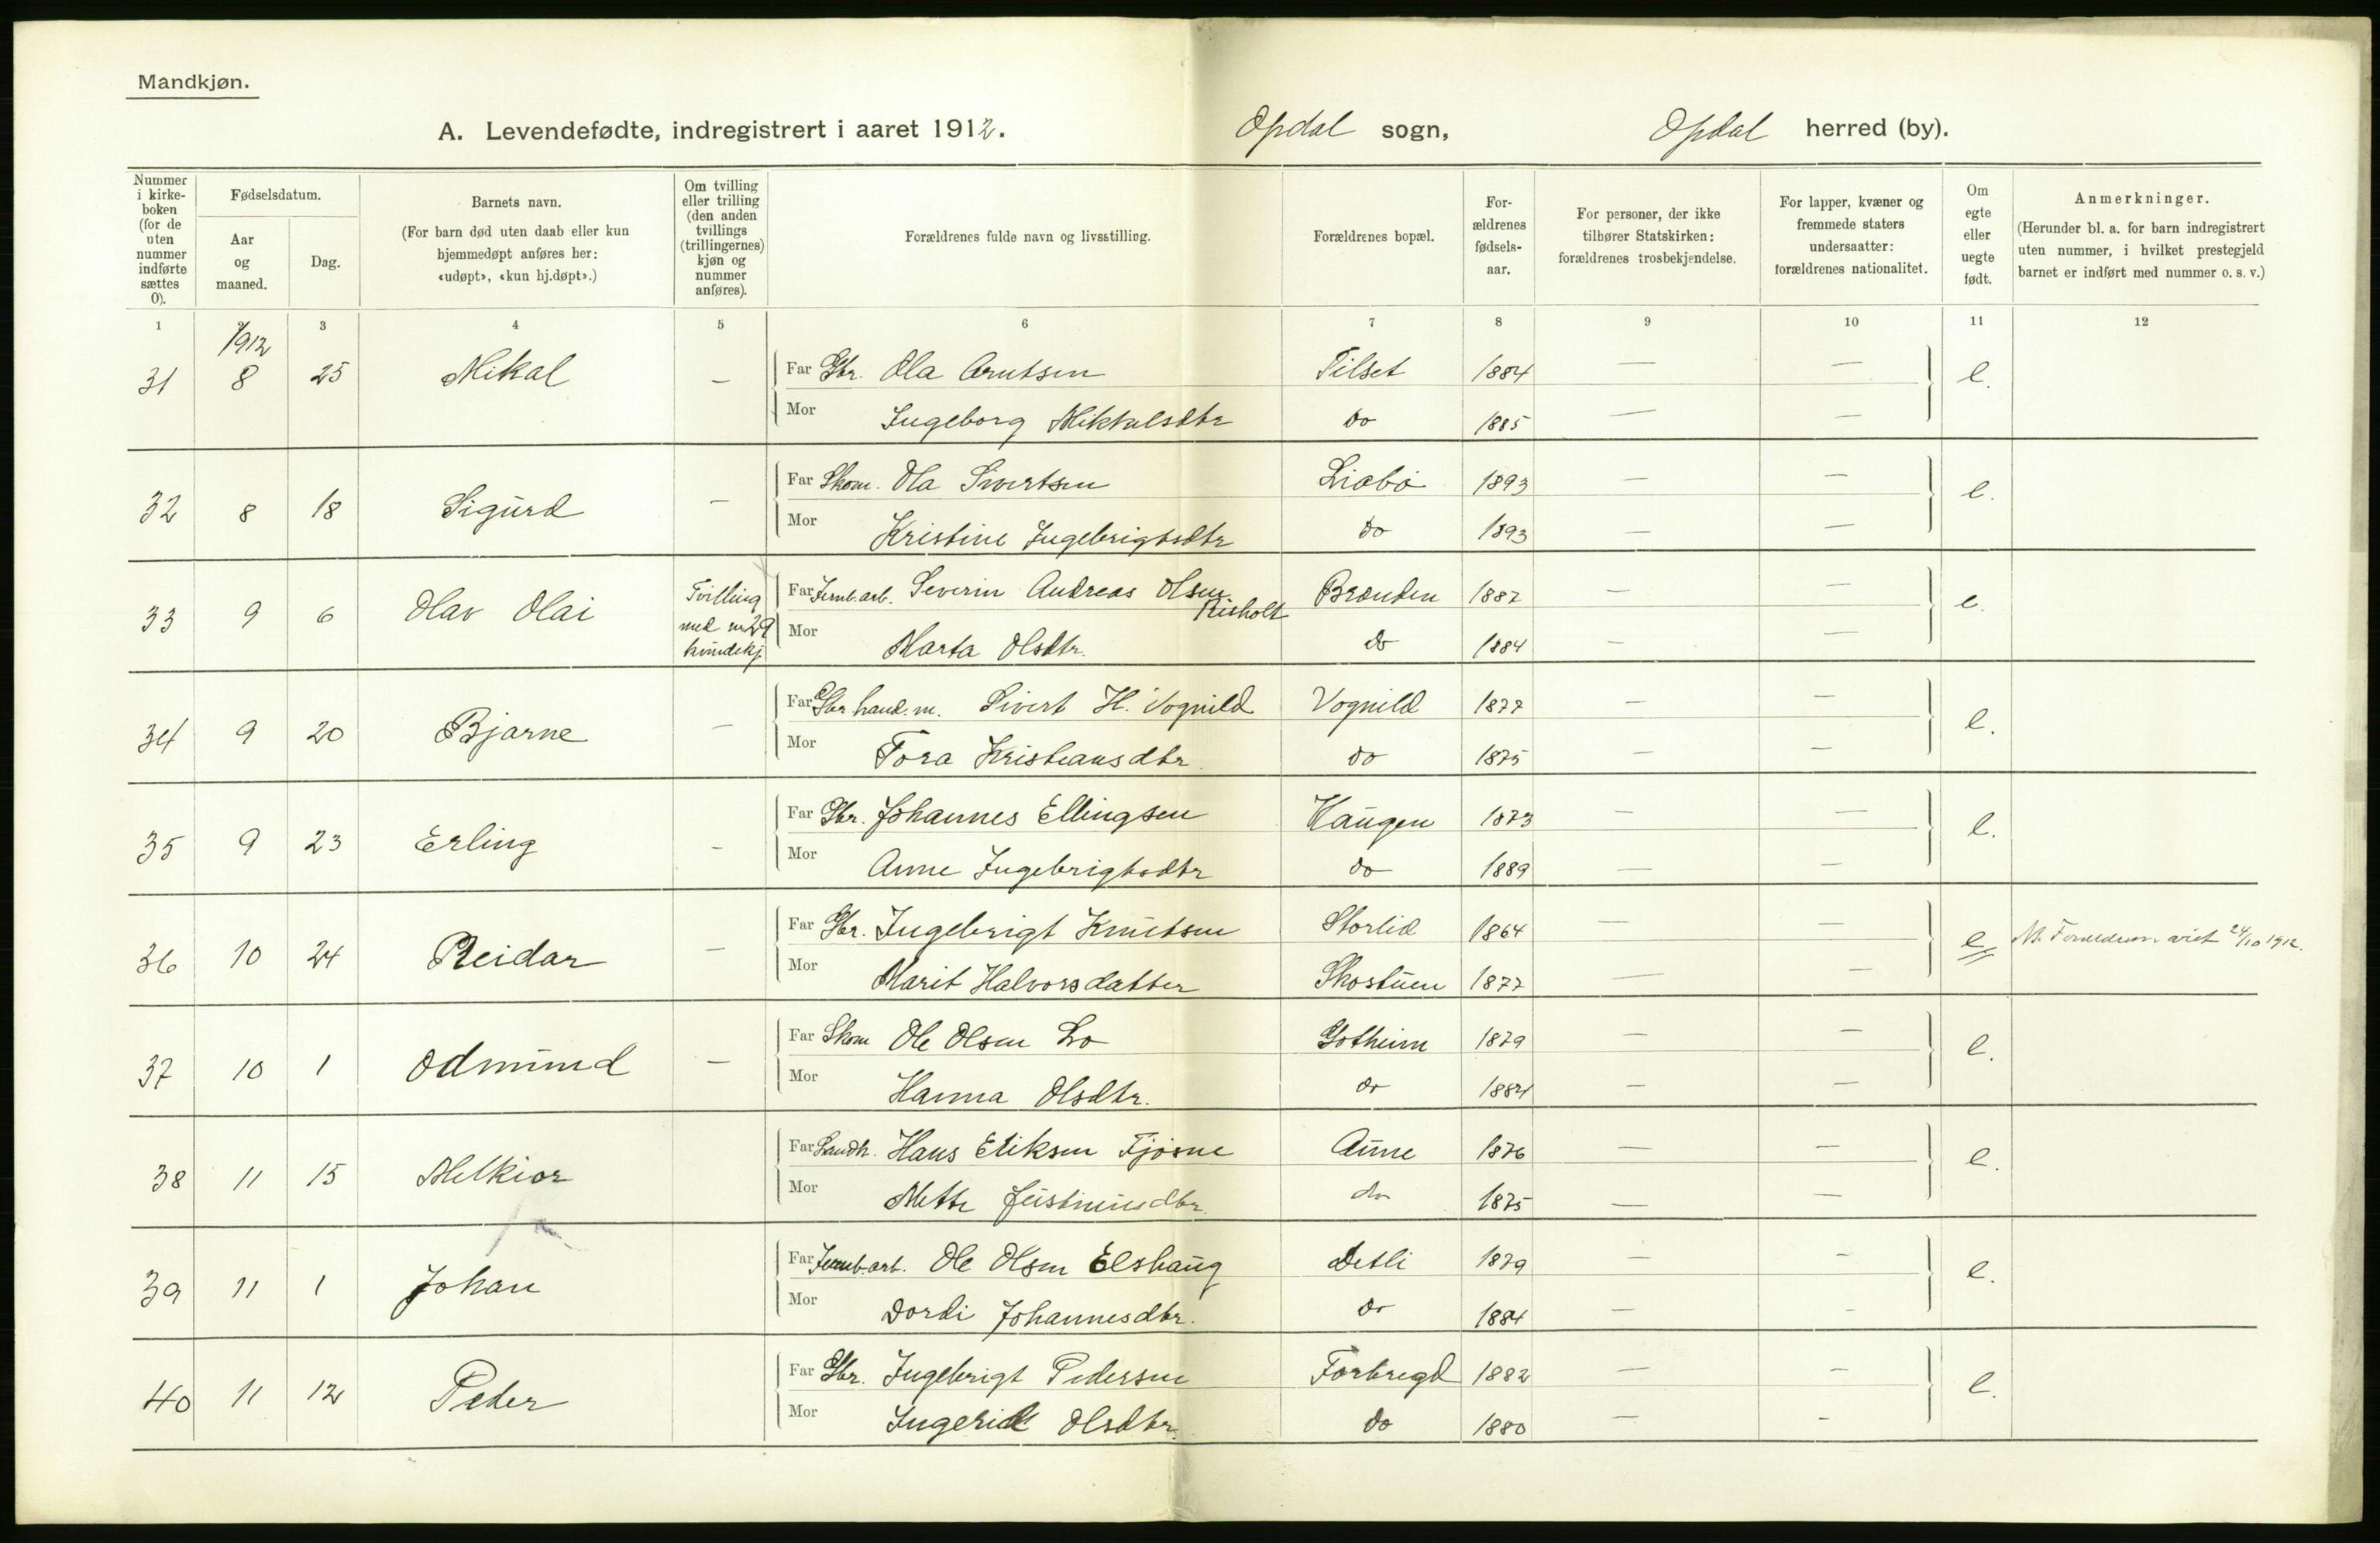 Mandkjøn.
A. Levendefødte, indregistrert i aaret 1912. Opdal sogn, Opdal herred (by).
Nummer i kirke-boken (for de uten nummer indførte sættes 0). Fødselsdatum. Aar og maaned. Dag. Barnets navn. (For barn død uten daab eller kun hjemmedøpt anføres her: «udøpt», «kun hj.døpt».) Om tvilling eller trilling (den anden tvillings (trillingernes) kjøn og nummer anføres). Forældrenes fulde navn og livsstilling. Forældrenes bopæl. For-ældrenes fødsels-aar. For personer, der ikke tilhører Statskirken: forældrenes trosbekjendelse. For lapper, kvæner og fremmede staters undersaatter: forældrenes nationalitet. Om egte eller uegte født. Anmerkninger. (Herunder bl. a. for barn indregistrert uten nummer, i hvilket prestegjeld barnet er indført med nummer o. s. v.)
1 2 3 4 5 6 7 8 9 10 11 12
1912
31 8 25 Mikal — Far Gbr. Ola Arntsen Tilset 1884 — — e.
Mor Ingeborg Mikkalsdtr do 1885 — —
32 8 18 Sigurd — Far Skom. Ola Sivertsen Liabø 1893 — — e.
Mor Kristine Ingebrigtsdtr do 1893 — —
33 9 6 Olav Olai Tvilling med nr 29 kvindekj. Far Jernb.arb. Severin Andreas Olsen Risholt Brænden 1887 — — e.
Mor Marta Olsdtr. do 1884 — —
34 9 20 Bjarne — Far Gbr hand.m. Sivert H. Vognild Vognild 1877 — — e.
Mor Tora Kristiansdtr. do 1875 — —
35 9 23 Erling — Far Gbr. Johannes Ellingsen Haugen 1873 — — e.
Mor Anne Ingebrigtsdtr do 1889 — —
36 10 24 Reidar — Far Gbr. Ingebrigt Knutsen Storlid 1864 — — e Forældrene viet 24/10 1912.
Mor Marit Halvorsdatter Skostuen 1877 — —
37 10 1 Odmund — Far Skom Ole Olsen Lo Gotheim 1879 — — e.
Mor Hanna Olsdtr. do 1884 — —
38 11 15 Melkior Far Landh. Hans Eriksen Fjøsne Aune 1876 — — e.
Mor Mette Justinusdtr. do 1875 — —
39 11 1 Johan Far Jernb.arb. Ole Olsen Elshaug Detli 1879 — — e.
Mor Dordi Johannesdtr. do 1884 — —
40 11 12 Peder Far Gbr. Ingebrigt Pedersen Forbregd 1882 — — e.
Mor Ingerid Olsdtr. do 1880 — —